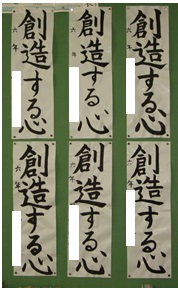 創造する心
六年
創造する心
六年
創造する心
六年
創造する心
六年
創造する心
六年
創造する心
六年